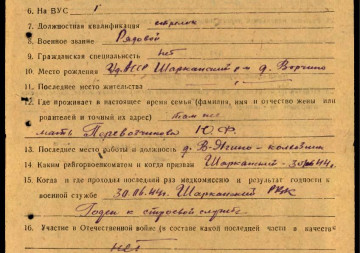 6. На ВУС 1
7. Должностная квалификация стрелок
8. Военное звание Рядовой
9. Гражданская специальность нет
10. Место рождения Уд.АССР Шарканский р-н д. Ворчино
11. Последнее место жительства
12. Где проживает в настоящее время семья (фамилия, имя и отчество жены или
родителей и точный их адрес) там же
мать Перевозчикова Ю.Ф.
13. Последнее место работы и должность д. В-Ягино - колхозник
14. Каким райгорвоенкоматом и когда призван Шарканский - 30/VI 44 г.
15. Когда и где проходил последний раз медкомиссию и результат годности к
военной службе 30.06.44г. Шарканский РВК
Годен к строевой службе
16. Участие в Отечественной войне (в составе какой последней части в качестве
нет